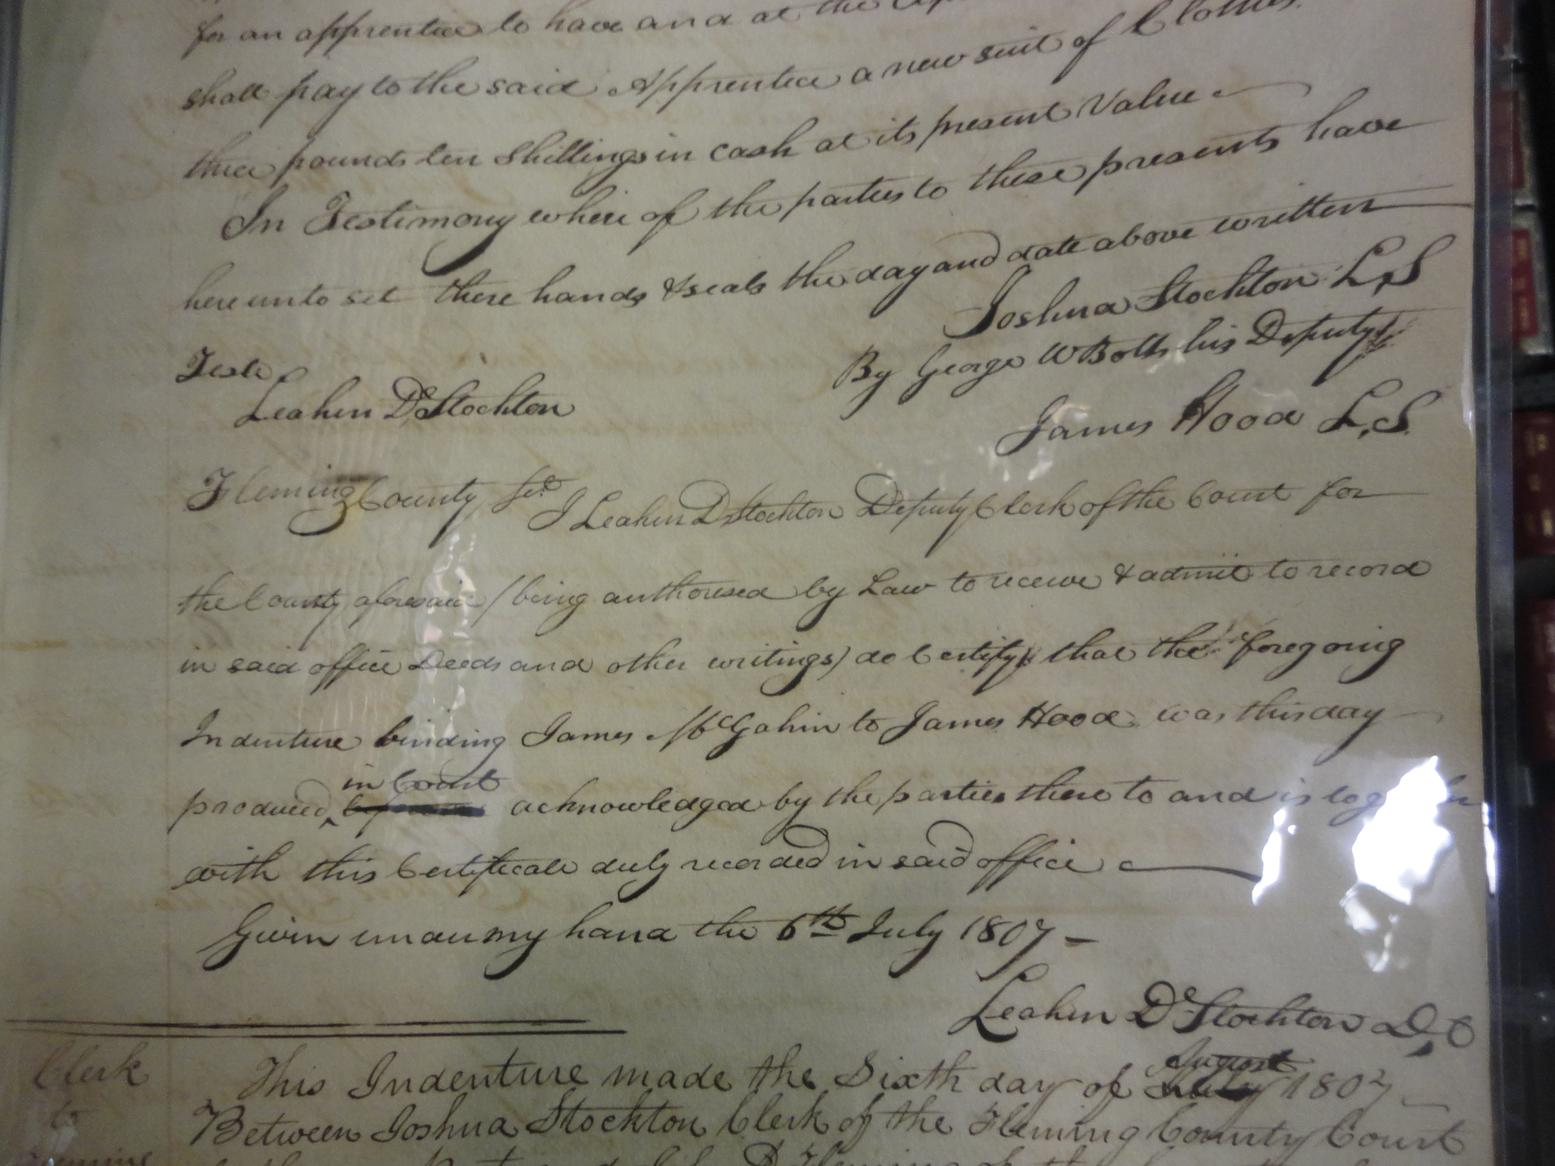 for an apprentice to have and at the
shall pay to the said Apprentice a new suit of Clothes
three pounds ten Shillings in cash at its present Value
In Testimony where of the parties to these presents have
here unto set there hands & seals the day and date above written
Joshua Stockton L,S
Teste
By George W Botts his Deputy
Leakin De Stockton
James Hood L.S.
Fleming County Sct I Leakin D Stockton Deputy Clerk of the Court for
the County aforesaid (being authorised by Law to receive & admit to record
in said office Deeds and other writings) do Certify that the foregoing
Indenture binding James McGahin to James Hood was this day
in Court
produced, acknowledged by the parties there to and is
with this Certificate duly recorded in said office
Given under my hand the 6th July 1807 -
Leakin De Stockton D,C
Clerk
to
Fleming
August
This Indenture made the Sixth day of July 1807
Between Joshua Stockton Clerk of the Fleming County Court